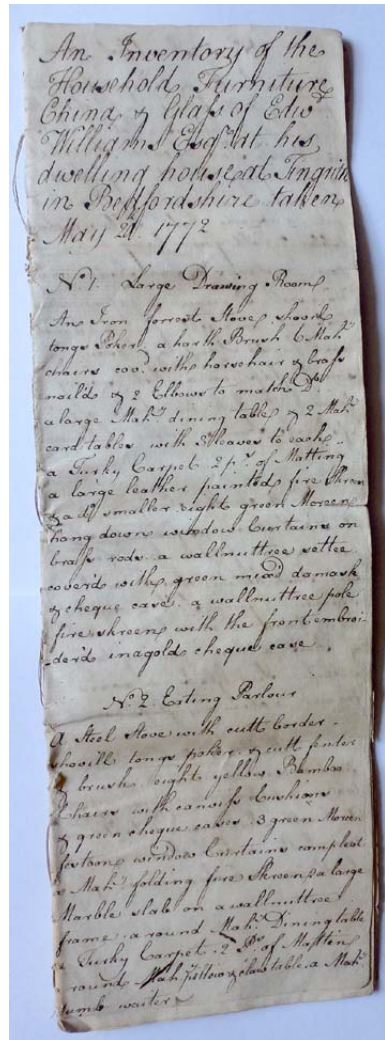 An Inventory of the
Household Furniture
China & Glass of Edwd
Williams Esqr at his
dwelling house at Tingrith
in Bedfordshire taken
May 21 1772
No 1 Large Drawing Room
An Iron forrest Stove shovel
tongs Poker a harth Brush 6 Mahy
chairs covd with horsehair & brass
naild & 2 Elbows to match Do
a large Mahy dining table & 2 Mahy
card tables with 3 leaves to each
a Turky Carpet 2 ps of Matting
a large leather painted fire Skreen
& a do smaller eight green Moreen
hang down window Curtains on
brass rods a wallnuttree settee
coverd with green mixd damask
& cheque case a wallnuttree pole
fire skreen with the front embroi
-derd in a gold cheque case
No 2 Eating Parlour
A Steel Stove with cutt border
shovill tongs poker & cutt fender
& brush eight yellow Bambo
Chairs with canvass Cushions
& green cheque cases 3 green Moreen
festoon window Curtains compleat
a Mahy folding fire Skreen a large
Marble slab on a wallnuttree
frame a round Mahy Dining table
a Turky Carpet 2 Ps of Mattin
a round Mahy pillow & claw table a Mahy
dumb waiter